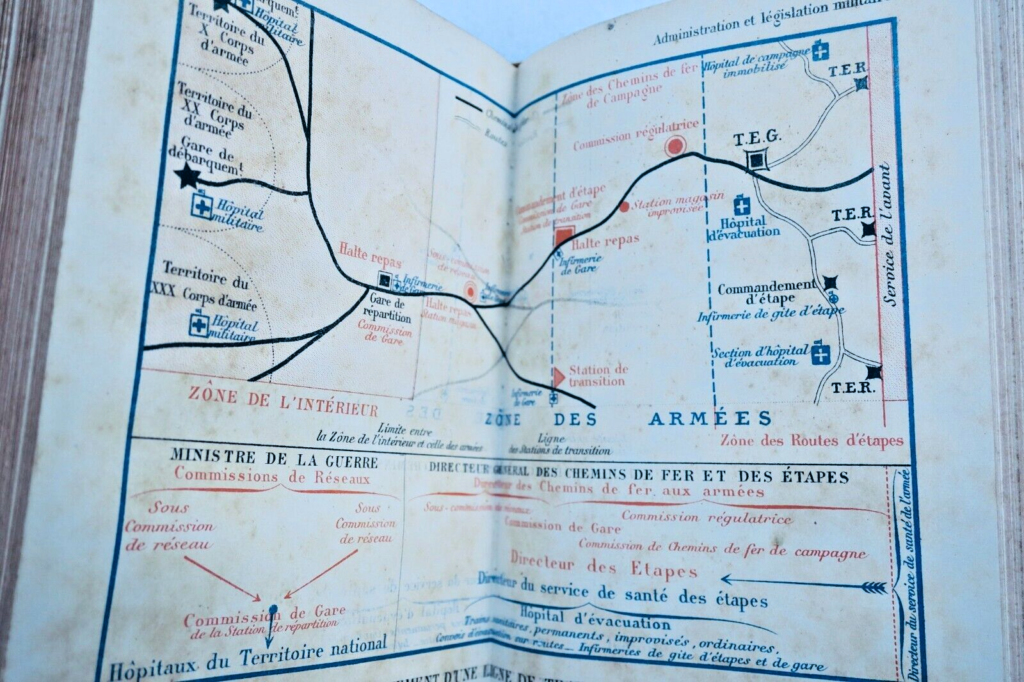 Administration et législation
Hôpital
militaire
Territoire du
X Corps
d'armée
Territoire du
XX Corps
d'armée
Gare de
débarquemt
Hôpital
militaire
Territoire du
XXX Corps d'armée
Hôpital
militaire
Halte repas
Infirmerie
Gare de
répartition
Commission
de Gare
Halte repas
ZÔNE DE L'INTÉRIEUR
Limite entre
la Zône de l'intérieur et celle des armées
Zône des Chemins de fer
de Campagne
Commission régulatrice
Station magasin
improvisée
Halte repas
Infirmerie
de Gare
Station de
transition
Infirmerie
de Gare
Hôpital de campagne
immobilisé
T.E.R.
T.E.G.
Hôpital
d'évacuation
T.E.R.
Commandement
d'étape
Infirmerie de gite d'étape
Section d'hôpital
d'évacuation
T.E.R.
Service de l'avant
ZÔNE DES ARMÉES
Ligne
des Stations de transition
Zône des Routes d'étapes
MINISTRE DE LA GUERRE
Commissions de Réseaux
Sous
Commission
de réseau
Sous
Commission
de réseau
Commission de Gare
de la Station de répartition
Hôpitaux du Territoire national
DIRECTEUR GÉNÉRAL DES CHEMINS DE FER ET DES ÉTAPES
Directeur des Chemins de fer aux armées
Commission régulatrice
Commission de Gare
Commission de Chemins de fer de campagne
Directeur des Etapes
Directeur du service de santé des étapes
Hôpital d'évacuation
Trains sanitaires, permanents, improvisés, ordinaires,
Convois d'évacuation sur routes _ Infirmeries de gite d'étapes et de gare
Directeur du service de santé de l'armée
D'UNE LIGNE DE